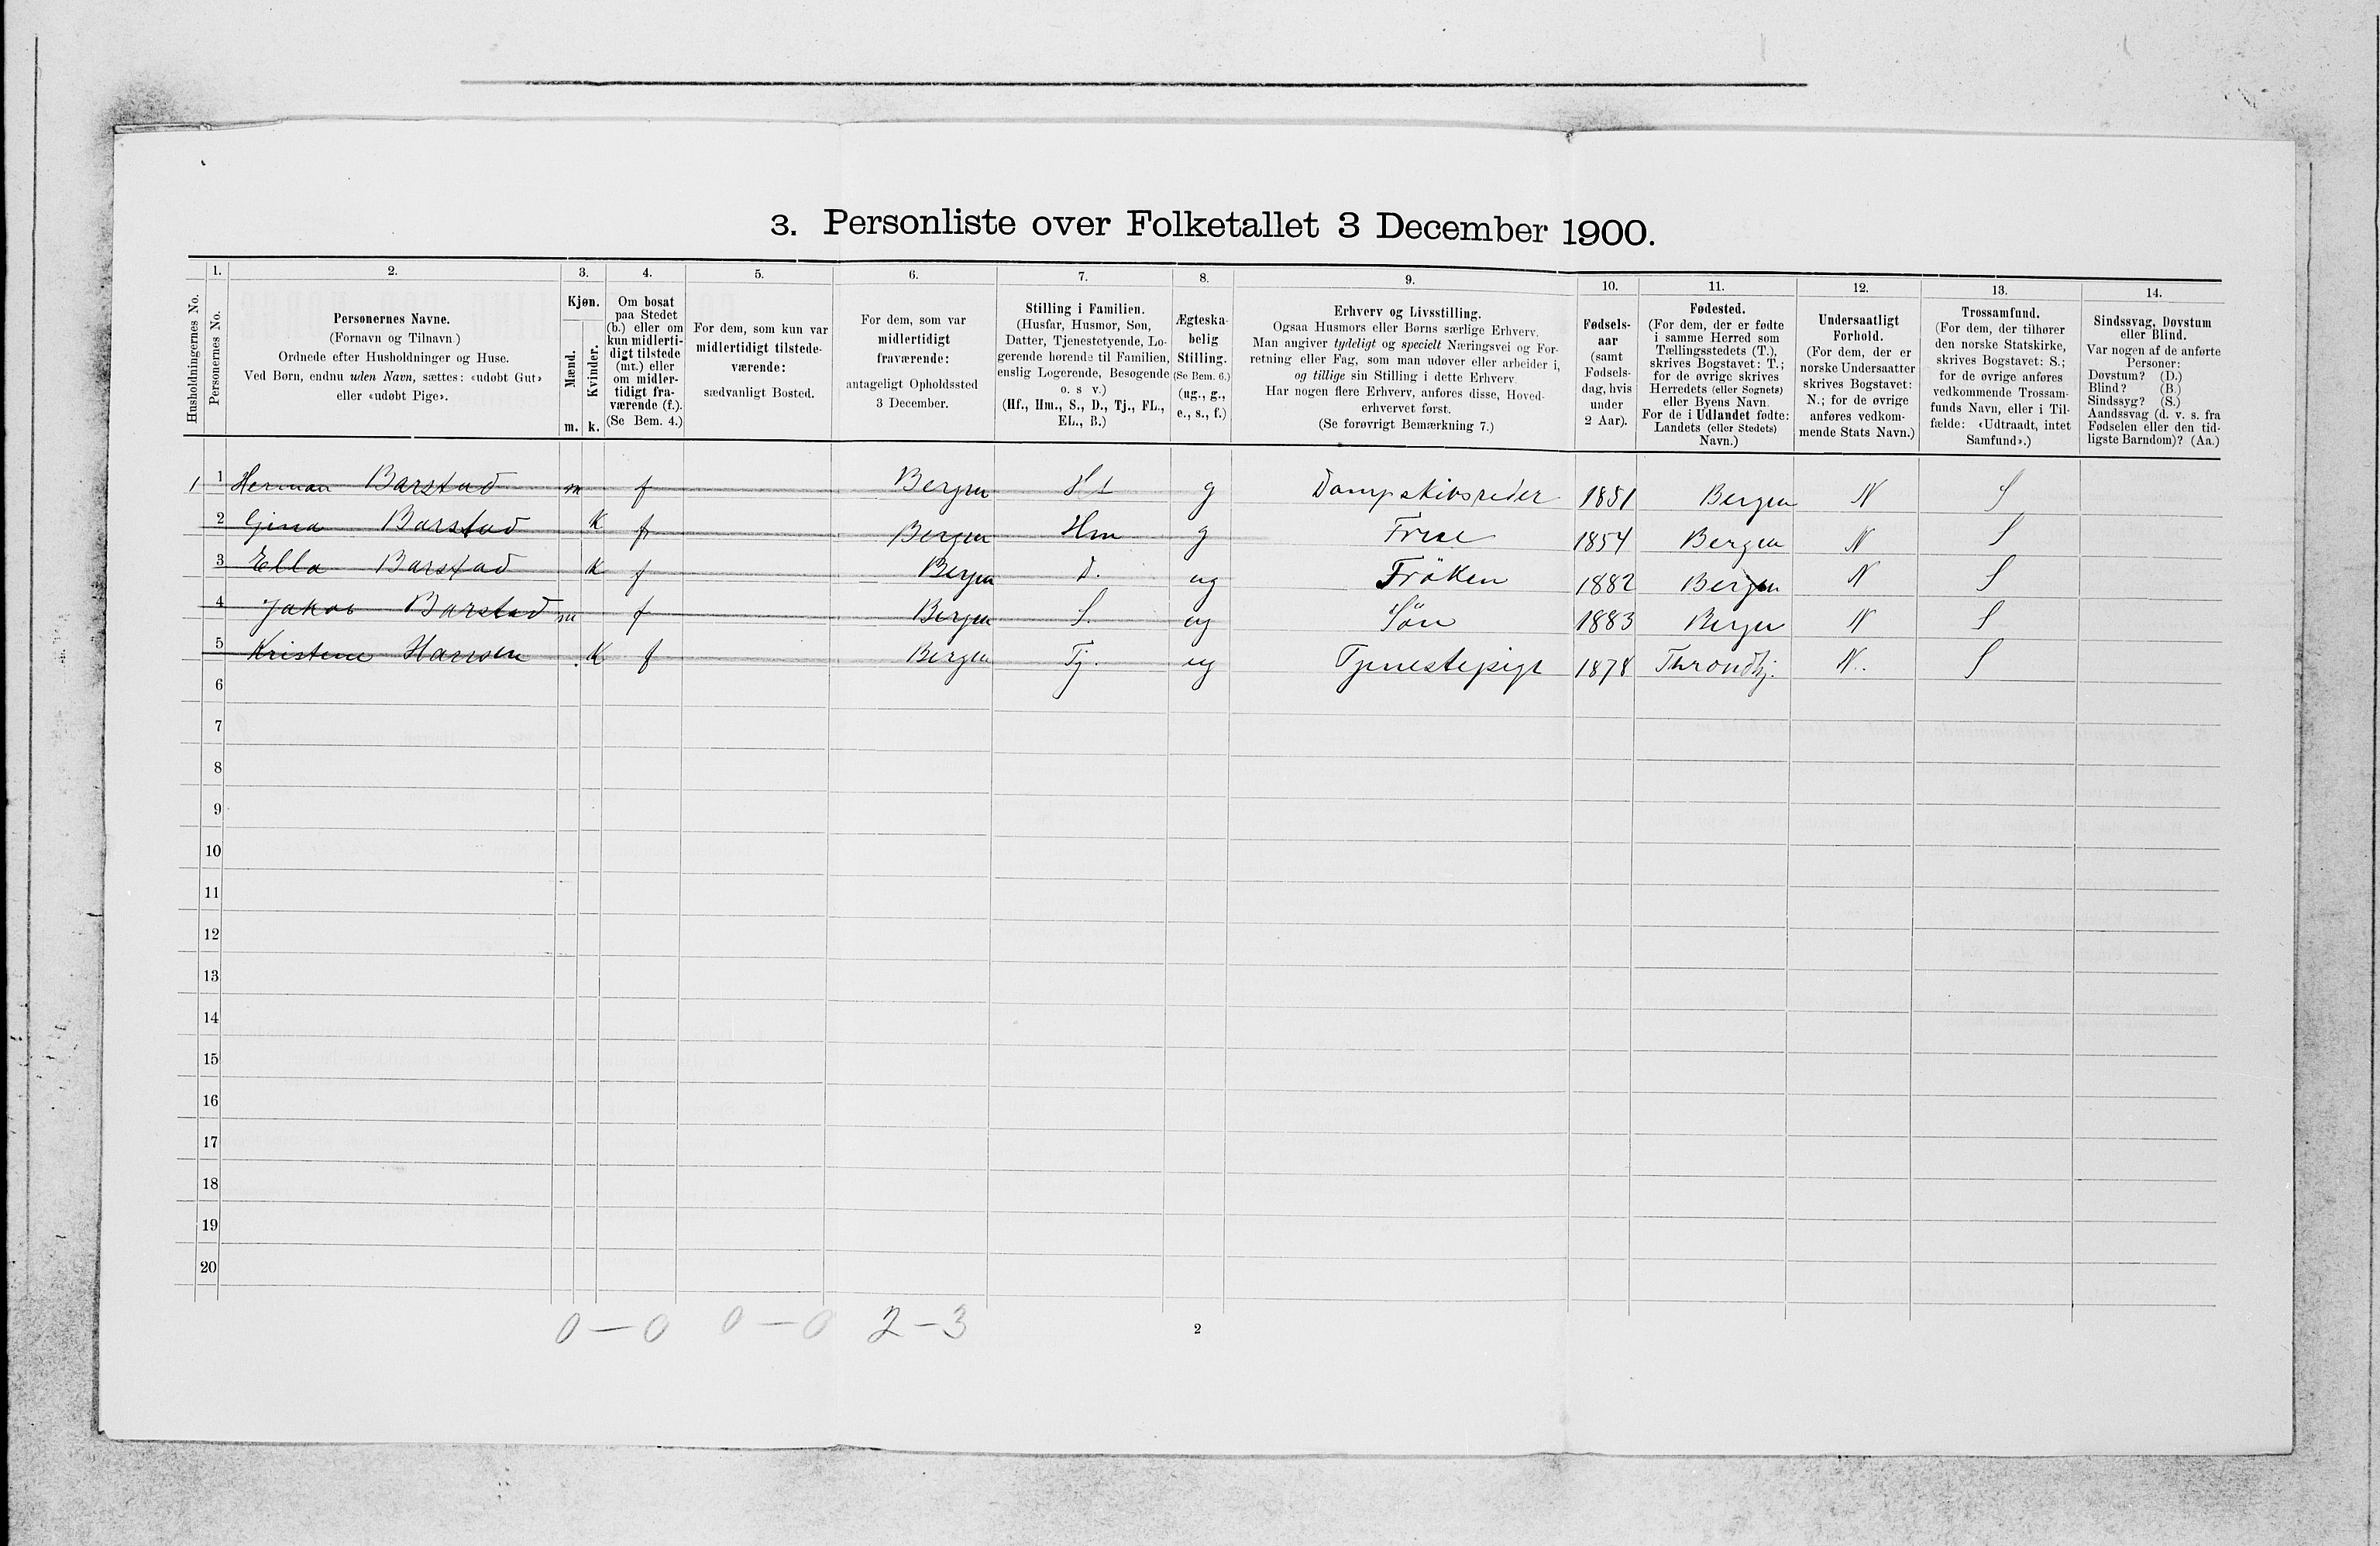 3. Personliste over Folketallet 3 December 1900.
1. 2. 3. 4. 5. 6. 7. 8. 9. 10. 11. 12. 13. 14.
Husholdningernes No.
Personernes No.
Personernes Navne.
(Fornavn og Tilnavn.)
Ordnede efter Husholdninger og Huse.
Ved Børn, endnu uden Navn, sættes: «udøbt Gut»
eller «udøbt Pige».
Kjøn.
Mænd.
Kvinder.
m. k.
Om bosat
paa Stedet
(b.) eller om
kun midlerti-
digt tilstede
(mt.) eller
om midler-
tidigt fra-
værende (f.).
(Se Bem. 4.)
For dem, som kun var
midlertidigt tilstede-
værende:
sædvanligt Bosted.
For dem, som var
midlertidigt
fraværende:
antageligt Opholdssted
3 December.
Stilling i Familien.
(Husfar, Husmor, Søn,
Datter, Tjenestetyende, Lo-
gerende hørende til Familien,
enslig Logerende, Besøgende
o. s v.)
(Hf., Hm., S., D., Tj., FL.,
EL., B.)
Ægteska-
belig
Stilling.
(Se Bem. 6.)
(ug., g.,
e., s., f.)
Erhverv og Livsstilling.
Ogsaa Husmors eller Børns særlige Erhverv.
Man angiver tydeligt og specielt Næringsvei og For-
retning eller Fag, som man udøver eller arbeider i,
og tillige sin Stilling i dette Erhverv.
Har nogen flere Erhverv, anføres disse, Hoved-
erhvervet først.
(Se forøvrigt Bemærkning 7.)
Fødsels-
aar
(samt
Fødsels-
dag, hvis
under
2 Aar).
Fødested.
(For dem, der er fødte
i samme Herred som
Tællingsstedets (T.),
skrives Bogstavet: T.;
for de øvrige skrives
Herredets (eller Sognets)
eller Byens Navn.
For de i Udlandet fødte:
Landets (eller Stedets)
Navn.)
Undersaatligt
Forhold.
(For dem, der er
norske Undersaatter
skrives Bogstavet:
N.; for de øvrige
anføres vedkom-
mende Stats Navn.)
Trossamfund.
(For dem, der tilhører
den norske Statskirke,
skrives Bogstavet: S.;
for de øvrige anføres
vedkommende Trossam-
funds Navn, eller i Til-
fælde: «Udtraadt, intet
Samfund».)
Sindssvag, Døvstum
eller Blind.
Var nogen af de anførte
Personer:
Døvstum? (D.)
Blind? (B.)
Sindssyg? (S.)
Aandssvag (d. v. s. fra
Fødselen eller den tid-
ligste Barndom)? (Aa.)
1 1 Herman Barstad m f Bergen g Dampskibsreder 1851 Bergen N S
2 Gina Barstad K f Bergen Hm g Frue 1854 Bergen N S
3 Ella Barstad K f Bergen D. ug Fröken 1882 Bergen N S
4 Jakob Barstad m f Bergen S. ug Sön 1883 Bergen N S
5 Kristine Hansen K f Bergen Tj. ug Tjenestepige 1878 Throndhj. N. S
6
7
8
9
10
11
12
13
14
15
16
17
18
19
20
0 – 0 0 – 0 2 – 3
2